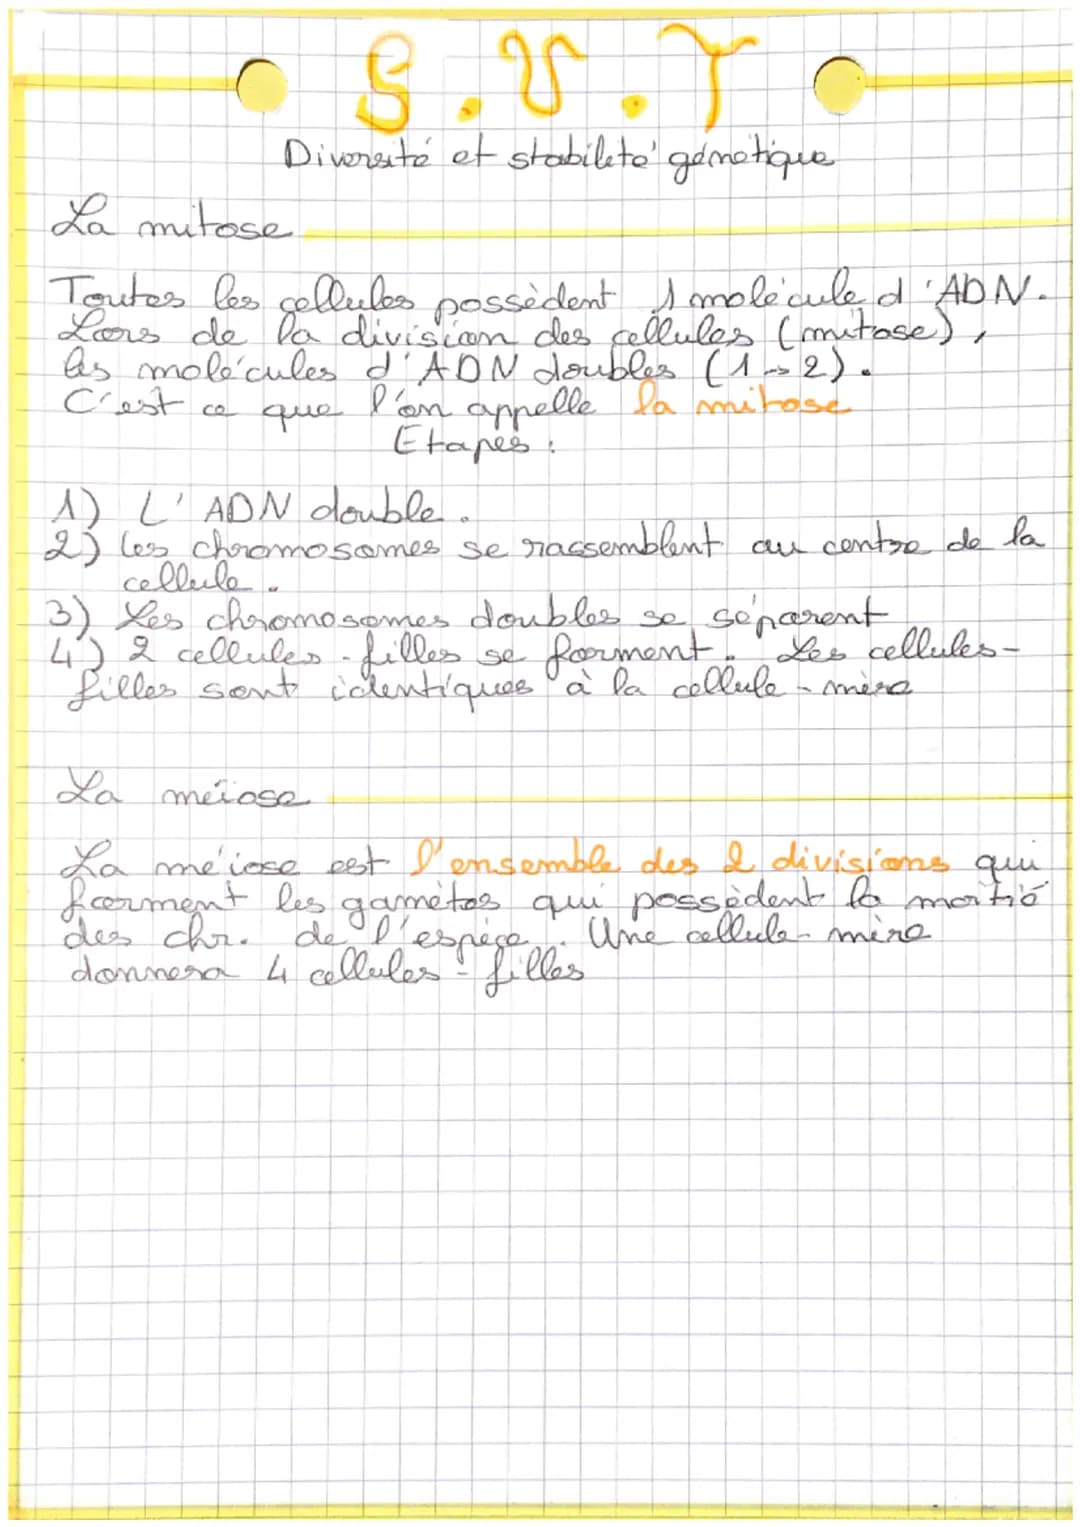 S.V.T
Diversité et stabilité génétique
La mitose
Toutes les cellules possèdent 1 molécule d'ADN.
Lors de la division des cellules (mitose),
les molécules d'ADN doubles (1→2).
C'est ce que l'on appelle la mitose
Etapes :
1) L'ADN double.
2) Les chromosomes se rassemblent au centre de la
cellule.
3) Les chromosomes doubles se séparent
4) 2 cellules-filles se forment. Les cellules-
filles sont identiques à la cellule-mère
La méiose
La méiose est l'ensemble des 2 divisions qui
forment les gamètes qui possèdent la moitié
des chr. de l'espèce. Une cellule-mère
donnera 4 cellules-filles